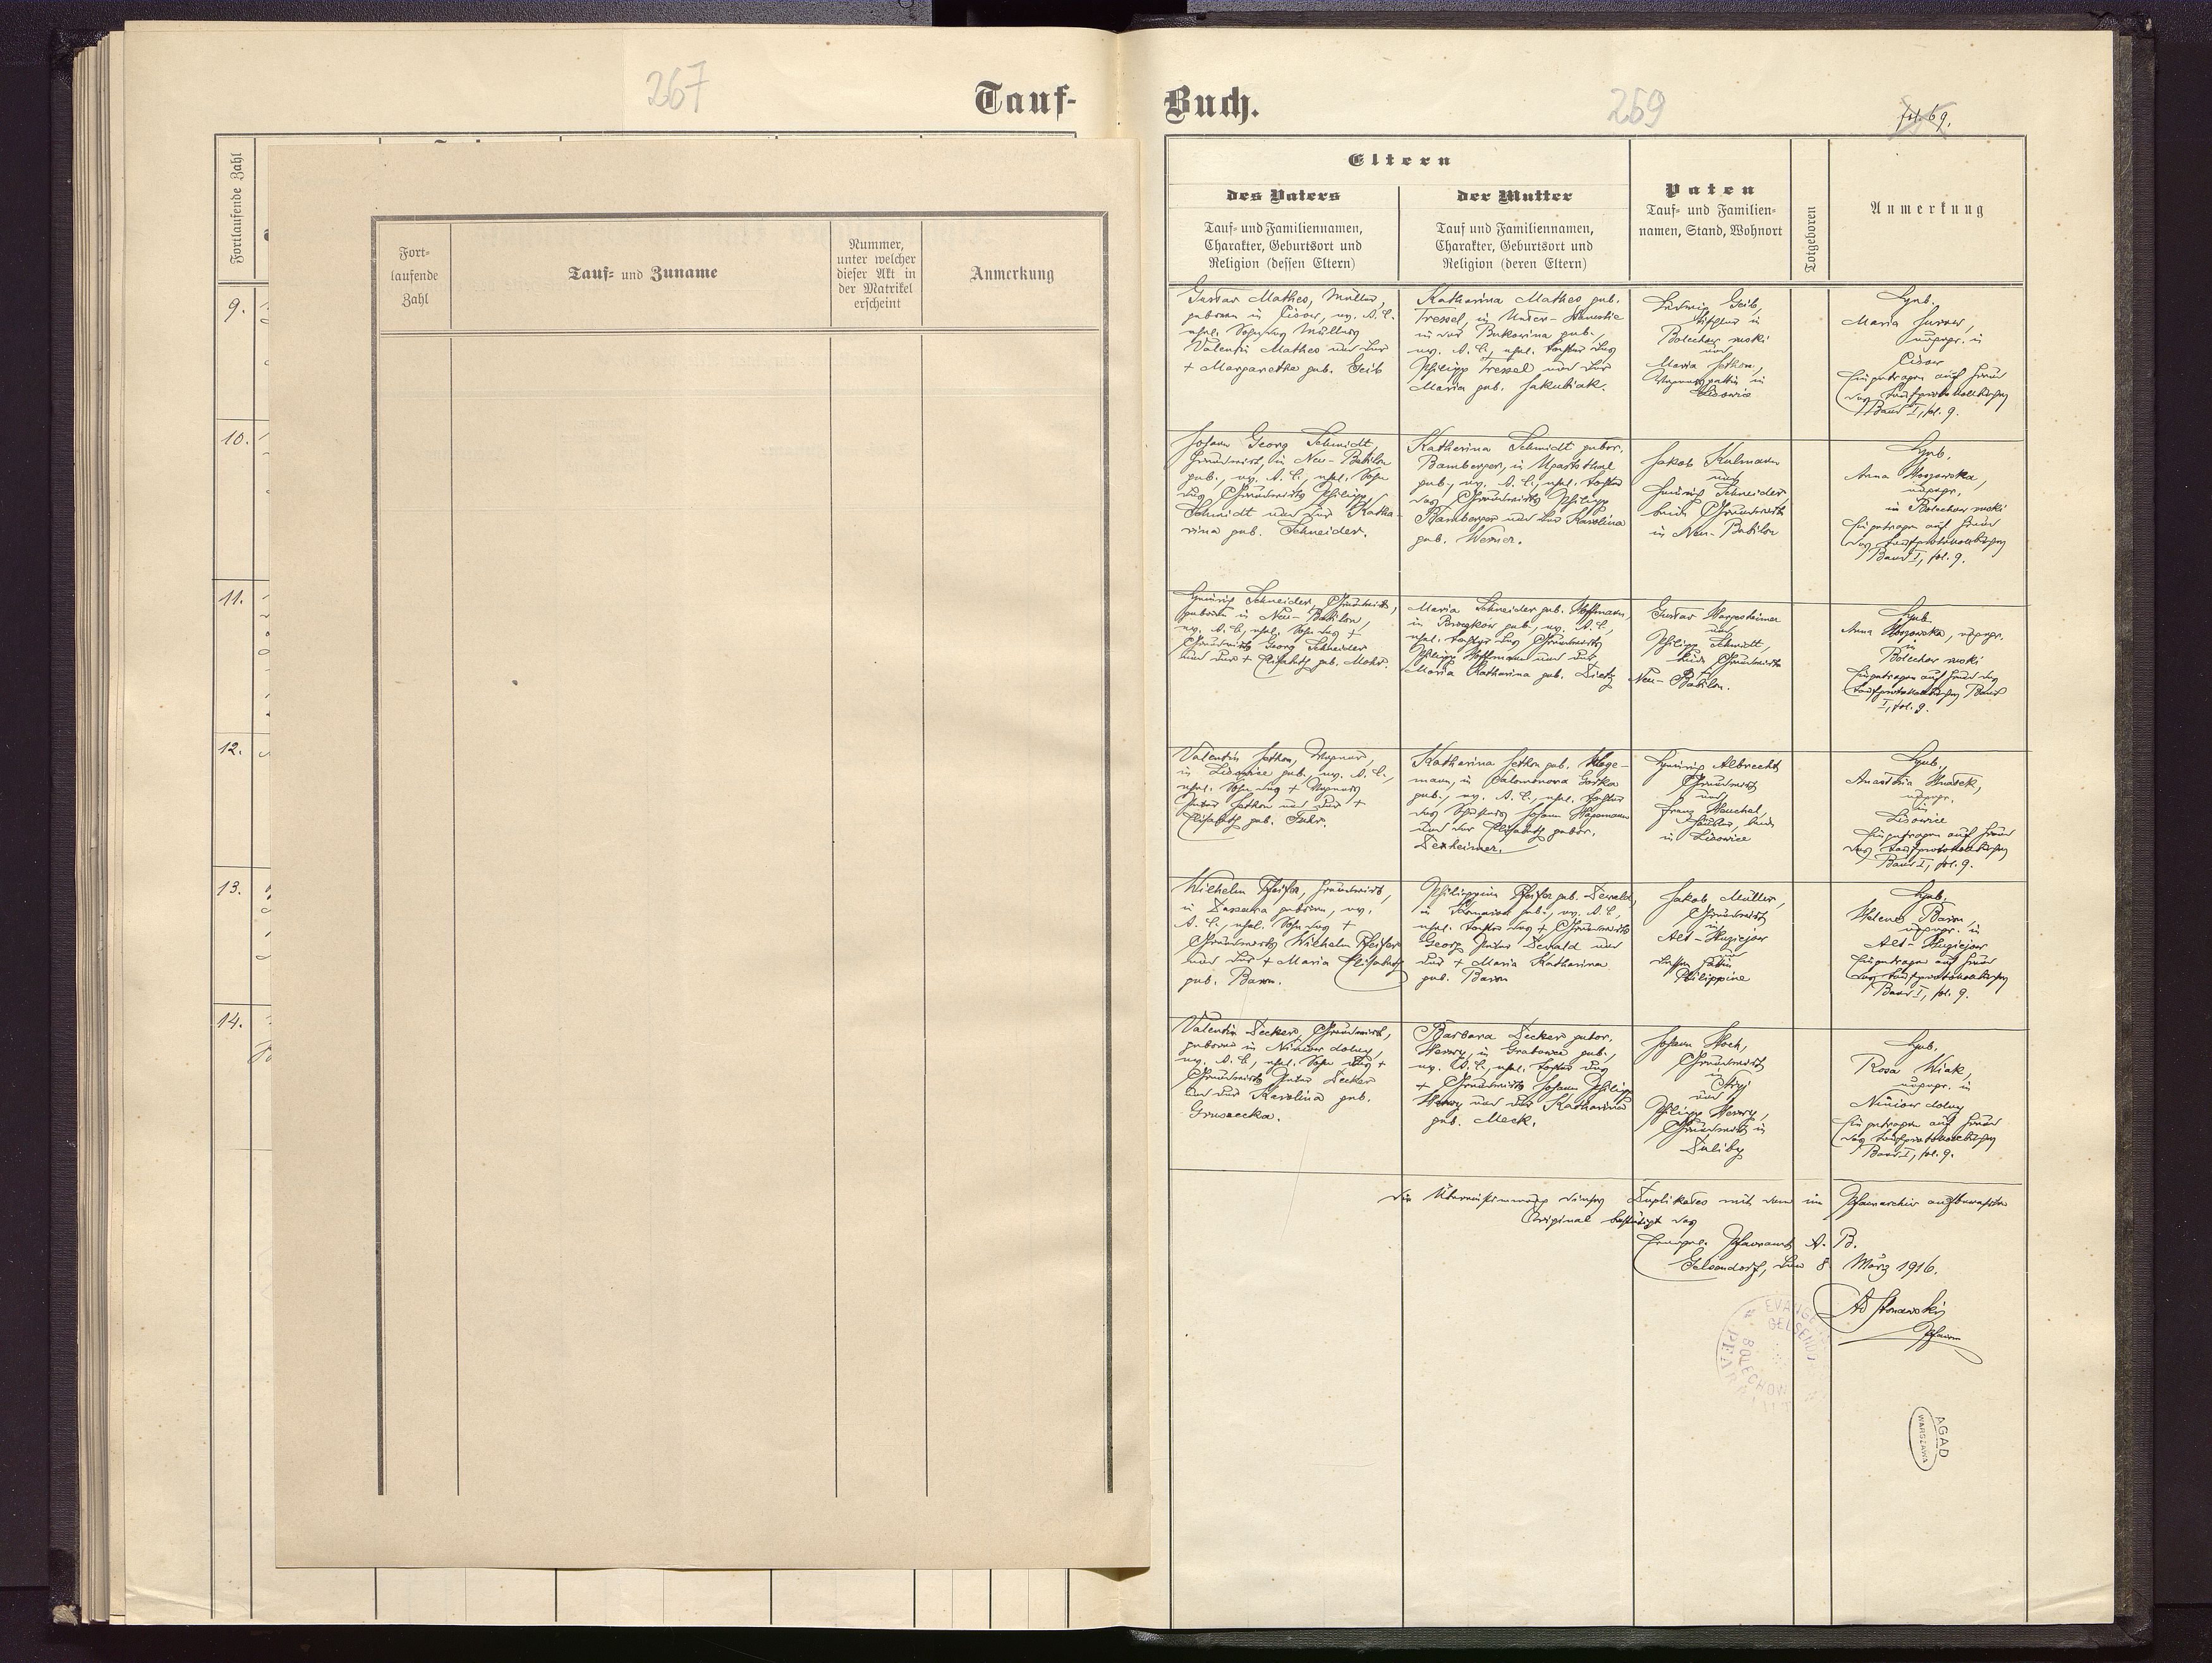 267
Tauf-
Fortlaufende Zahl
9.
10.
11.
12.
13.
14.
Fort-
laufende
Zahl
Tauf- und Zuname
Nummer,
unter welcher
dieser Akt in
der Matrikel
erscheint
Anmerkung
Buch.
269
fol. 69.
Eltern
des Vaters
Tauf- und Familiennamen,
Charakter, Geburtsort und
Religion (dessen Eltern)
der Mutter
Tauf und Familiennamen,
Charakter, Geburtsort und
Religion (deren Eltern)
Paten
Tauf- und Familien-
namen, Stand, Wohnort
Totgeboren
Anmerkung
Gustav Mathes, Müller,
geboren in Cisow, ev. A. C.
ehel. Sohn des Müllers
Valentin Mathes und der
+ Margaretha geb. Geib
Katharina Mathes geb.
Tressel, in Unter-
in der Bukowina geb.,
ev. A. C., ehel. Tochter des
Philipp Tressel und der
Maria geb. Jakubiak.
Ludwig Geib,
Tischler in
Bolechow ruski
und
Maria Jethon,
in
Lisowice
Heb.
Maria
geprf. in
Cisow
Eingetragen auf Grund
des Taufprotokollbuches
Band I, fol. 9.
Johann Georg Schmidt,
Grundwirt, in Neu-Babilon
geb., ev. A. C., ehel. Sohn
des Grundwirts Philipp
Schmidt und der Katha-
rina geb. Schneider.
Katharina Schmidt gebor.
Bamberger, in Ugartsthal
geb., ev. A. C., ehel. Tochter
des Grundwirts Philipp
Bamberger und der Karolina
geb. Werner.
Jakob Kulmann
und
Heinrich Schneider,
beide Grundwirte
in Neu-Babilon
Heb.
Anna
geprf.
in Bolechow ruski
Eingetragen auf Grund
des Taufprotokollbuches
Band I, fol. 9.
Heinrich Schneider, Grundwirt,
geboren in Neu-Babilon,
ev. A. C., ehel. Sohn des +
Grundwirts Georg Schneider
und der + Elisabeth geb. Mohr.
Maria Schneider geb. Hoffmann,
in geb., ev. A. C.,
ehel. Tochter des Grundwirts
Philipp Hoffmann und der
Maria Katharina geb. Dietz
Gustav
und
Philipp Schmidt,
beide Grundwirte
in
Neu-Babilon.
Heb.
Anna geprf.
in
Bolechow ruski
Eingetragen auf Grund des
Taufprotokollbuches Band
I, fol. 9.
Valentin Jethon, Wagner,
in Lisowice geb., ev. A. C.,
ehel. Sohn des + Wagners
Peter Jethon und der +
Elisabeth geb. Fuhr.
Katharina Jethon geb. Hage-
mann, in Salamonowa Gorka
geb., ev. A. C., ehel. Tochter
des Johann Hagemann
und der Elisabeth gebor.
Dexheimer.
Heinrich Albrecht
Grundwirt
und
Franz
beide
in Lisowice
Heb.
geprf.
in
Lisowice
Eingetragen auf Grund
des Taufprotokollbuches
Band I, fol. 9.
Wilhelm Pfeifer, Grundwirt,
in geboren, ev.
A. C., ehel. Sohn des +
Grundwirts Wilhelm Pfeifer
und der + Maria Elisabeth
geb. Baron.
Philippina Pfeifer geb. Dewald,
in geb., ev. A. C.,
ehel. Tochter des + Grundwirts
Georg Peter Dewald und
der + Maria Katharina
geb. Baron
Jakob Müller,
Grundwirt
in
und
dessen Gattin
Philippine
Heb.
Helene Baron,
geprf. in
Eingetragen auf Grund
des Taufprotokollbuches
Band I, fol. 9.
Valentin Decker, Grundwirt,
geboren in Niniow dolny,
ev. A. C., ehel. Sohn des +
Grundwirts Peter Decker
und der Karolina geb.
Gruszecka.
Barbara Decker gebor.
Henry, in Grabowce geb.,
ev. A. C., ehel. Tochter des
+ Grundwirts Johann Philipp
Henry und der Katharina
geb. Meck.
Johann Koch,
Grundwirt
in
Stryj
und
Philipp Henry,
Grundwirt in
Duliby
Heb.
Rosa Wiak,
geprf. in
Niniow dolny
Eingetragen auf Grund
des Taufprotokollbuches
Band I, fol. 9.
Die Übereinstimmung dieses Duplikates mit dem im Pfarrarchiv aufbewahrten
Original bestätigt das
Evangel. Pfarramt A. B.
Gelsendorf, den 8 März 1916.
Pfarrer
EVANGEL
GELSEND
BOLECHOW
PFARR
AGAD
WARSZAWA